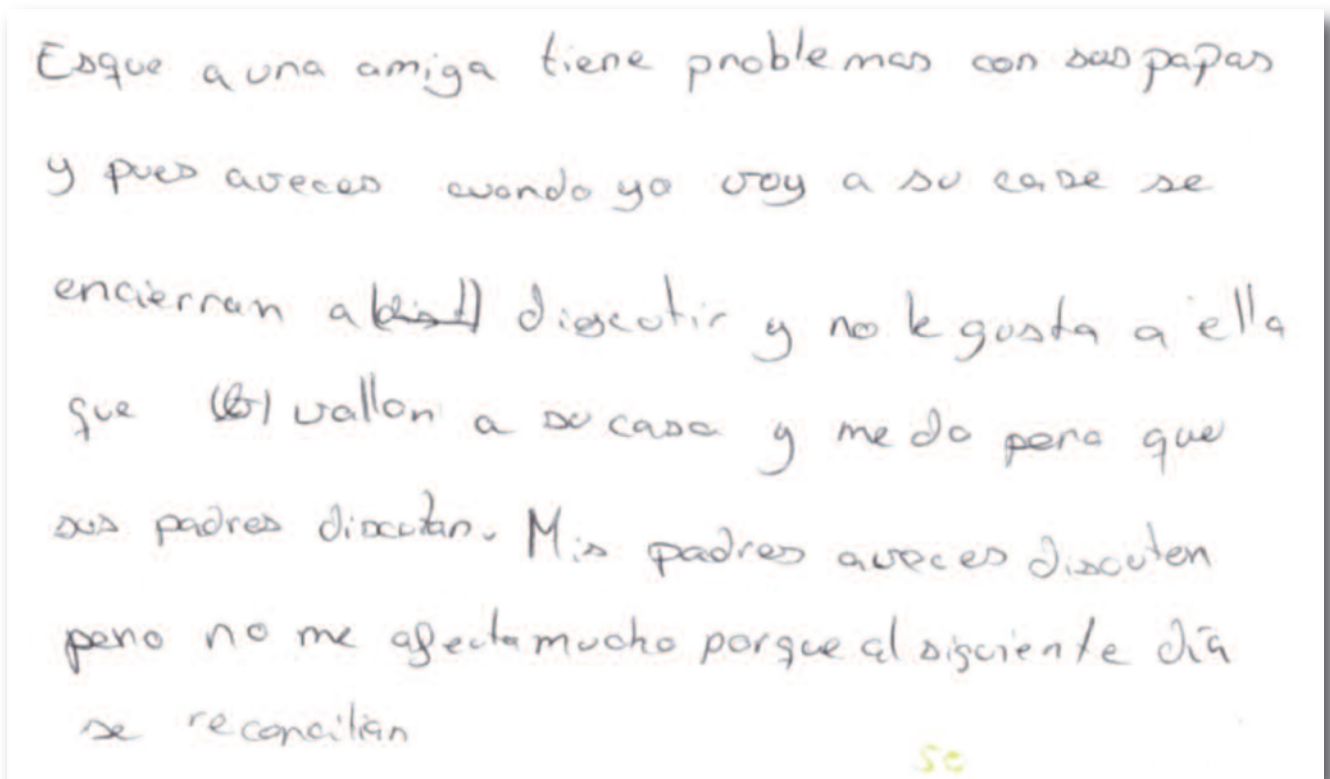 Esque a una amiga tiene problemas con sus papas
y pues aveces cuando yo voy a su case se
encierran a discutir y no le gusta a ella
que vallan a su casa y me da pena que
sus padres discutan. Mis padres aveces discuten
peno no me afecta mucho porque al siguiente día
se reconcilian
se